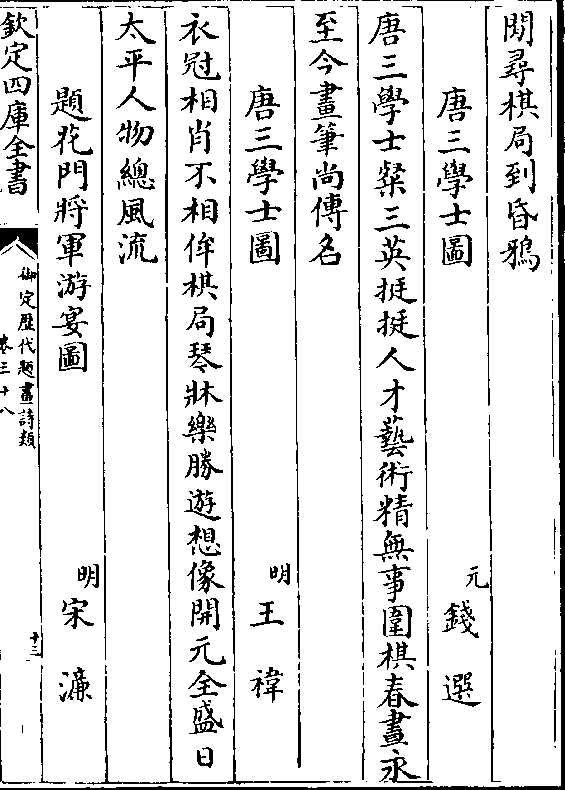 閒尋棋局到昏鴉
唐三學士圖　元　錢選
唐三學士粲三英挺挺人才藝術精無事圍棋春晝永
至今畫筆尚傳名
唐三學士圖　明　王禕
衣冠相肖不相侔棋局琴牀樂勝遊想像開元全盛日
太平人物總風流
題花門將軍游宴圖　明　宋濂
欽定四庫全書
御定歷代題畫詩類
卷三十八
十三